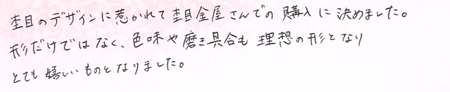 杢目のデザインに惹かれて杢目金屋さんでの購入に決めました。
形だけではなく、色味や磨き具合も理想の形となり
とても嬉しいものとなりました。